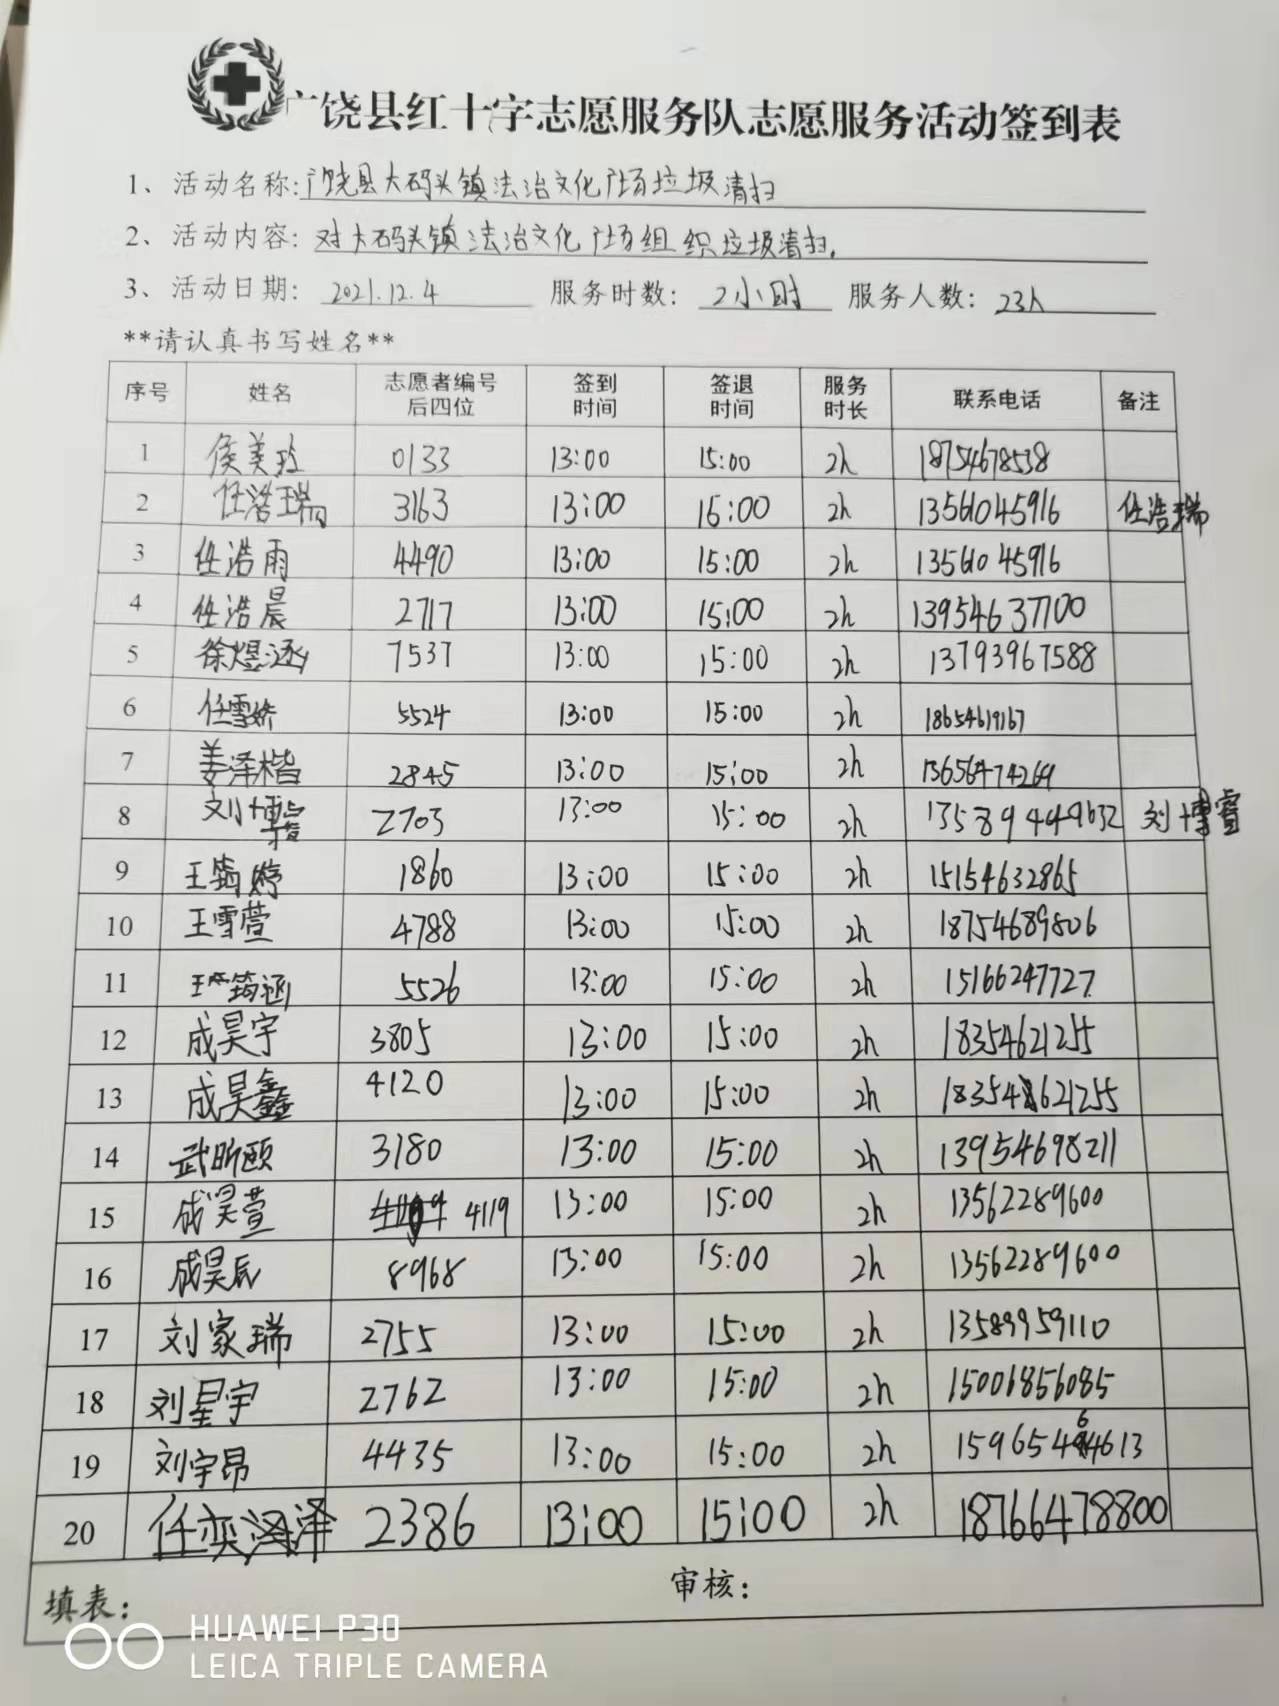 广饶县红十字志愿服务队志愿服务活动签到表
1、活动名称:广饶县大码头镇法治文化广场垃圾清扫
2、活动内容:对大码头镇法治文化广场组织垃圾清扫.
3、活动日期: 2021.12.4 服务时数: 2小时 服务人数: 23人
**请认真书写姓名**
序号 姓名 志愿者编号后四位 签到时间 签退时间 服务时长 联系电话 备注
1 侯美玲 0133 13:00 15:00 2h 18754678538
2 任浩瑞 3163 13:00 15:00 2h 13561045916 任浩瑞
3 任浩雨 4490 13:00 15:00 2h 13561045916
4 任浩晨 2717 13:00 15:00 2h 13954637100
5 徐煜涵 7537 13:00 15:00 2h 13793967588
6 任雪娇 5524 13:00 15:00 2h 18654619167
7 姜泽楷 2845 13:00 15:00 2h 13656474269
8 刘博 2703 13:00 15:00 2h 刘博睿
9 王筠婷 1860 13:00 15:00 2h 15154632865
10 王雪萱 4788 13:00 15:00 2h 18754689806
11 筠涵 5526 13:00 15:00 2h 15166247727
12 成昊宇 3805 13:00 15:00 2h 18354621255
13 成昊鑫 4120 13:00 15:00 2h 18354621255
14 武昕颐 3180 13:00 15:00 2h 13954698211
15 成昊萱 4119 13:00 15:00 2h 13562289600
16 成昊辰 8968 13:00 15:00 2h 13562289600
17 刘家瑞 2755 13:00 15:00 2h 13589959110
18 刘星宇 2762 13:00 15:00 2h 15006856085
19 刘宇昂 4435 13:00 15:00 2h 15965464613
20 任奕泽 2386 13:00 15:00 2h 18766478800
填表: 审核:
HUAWEI P30
LEICA TRIPLE CAMERA